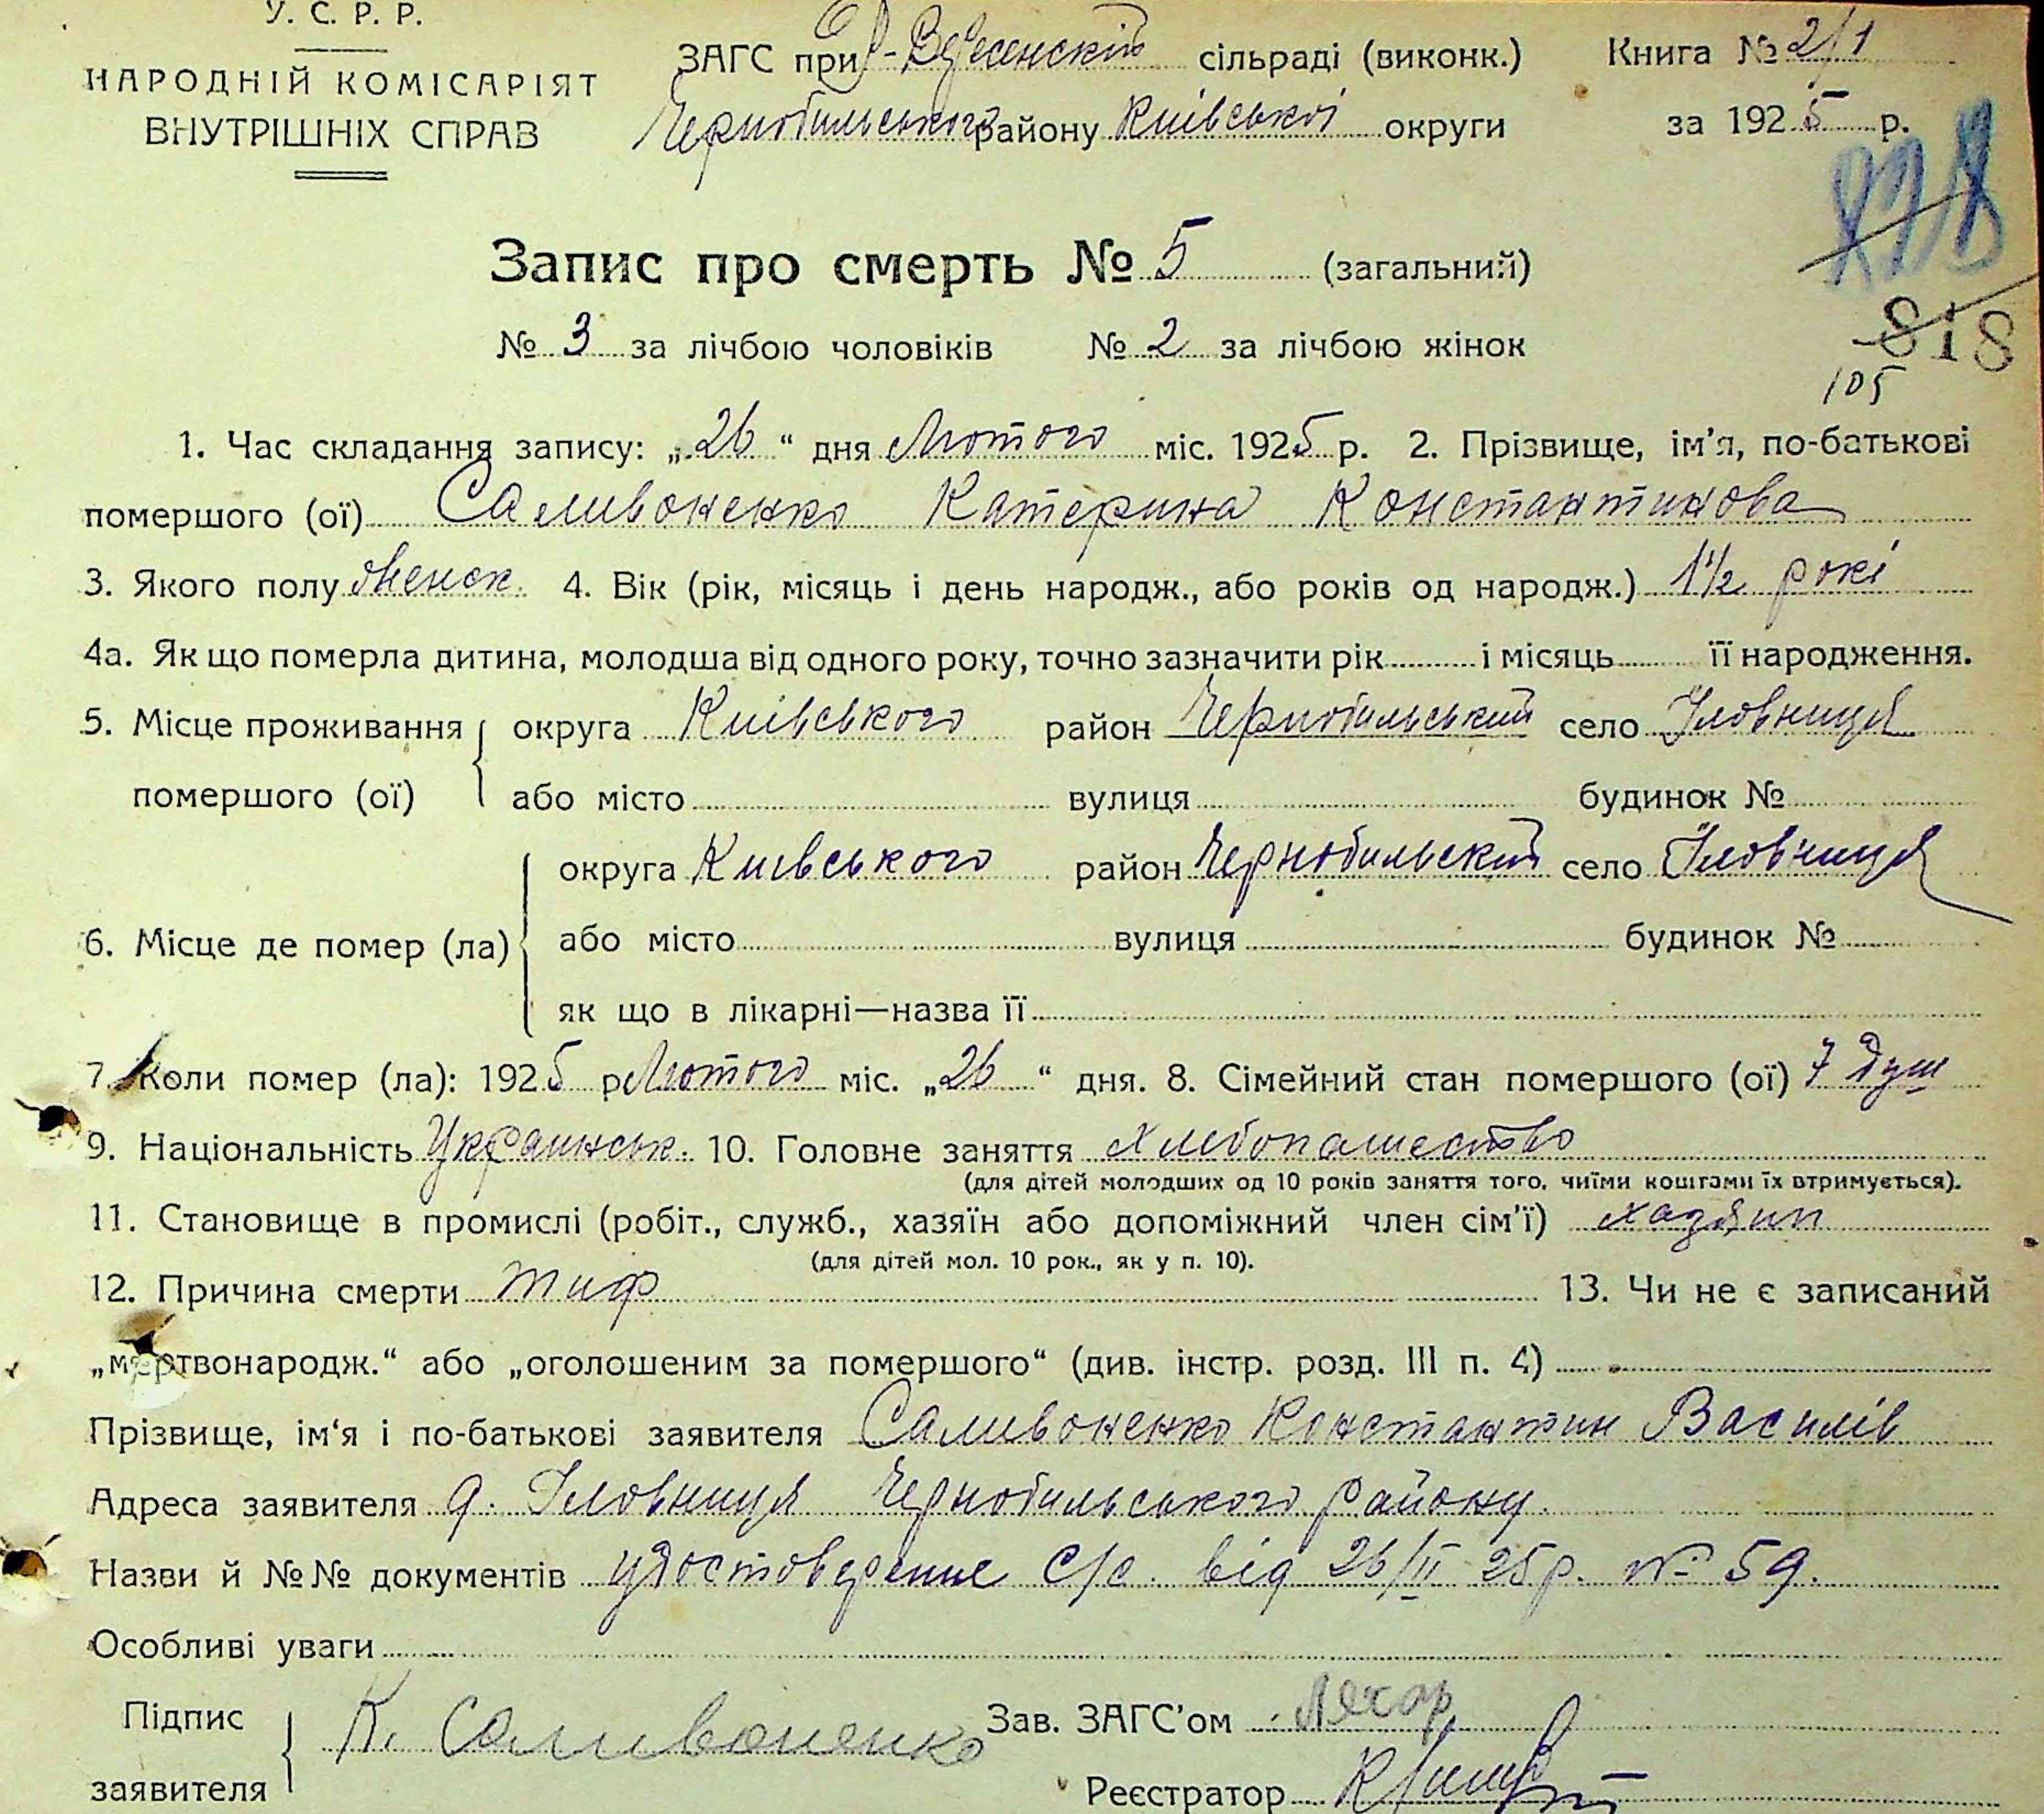 У. С. Р. Р.
НАРОДНІЙ КОМІСАРІЯТ
ВНУТРІШНІХ СПРАВ
ЗАГС при сільраді (виконк.) Книга № 2/1
Чернобильського району Київської округи за 1925 р.
828
Запис про смерть № 5 (загальний)
818
№ 3 за лічбою чоловіків № 2 за лічбою жінок
105
1. Час складання запису: „26“ дня Лютого міс. 1925 р. 2. Прізвище, ім'я, по-батькові
помершого (ої) Саливоненко Катерина Константинова
3. Якого полу женск. 4. Вік (рік, місяць і день народж., або років од народж.) 1½ рокі
4а. Як що померла дитина, молодша від одного року, точно зазначити рік і місяць її народження.
5. Місце проживання округа Київського район Чернобильський село Іловниця
помершого (ої) або місто вулиця будинок №
округа Киівського район Чернобильский село Іловниця
6. Місце де помер (ла) або місто вулиця будинок №
як що в лікарні—назва її
7. Коли помер (ла): 1925 р Лютого міс. „26“ дня. 8. Сімейний стан помершого (ої) 7 душ
9. Національність Украинськ. 10. Головне заняття хлебопашество
(для дітей молодших од 10 років заняття того, чиїми коштами їх втримується).
11. Становище в промислі (робіт., служб., хазяїн або допоміжний член сім'ї) хазяин
(для дітей мол. 10 рок., як у п. 10).
12. Причина смерти тиф 13. Чи не є записаний
„мертвонародж.“ або „оголошеним за помершого“ (див. інстр. розд. III п. 4)
Прізвище, ім'я і по-батькові заявителя Саливоненко Константин Василів
Адреса заявителя д. Іловниця Чернобильського району.
Назви й №№ документів удостоверение с/с. від 26/II 25р. № 59.
Особливі уваги
Підпис заявителя К. Саливоненко Зав. ЗАГС'ом
Реєстратор